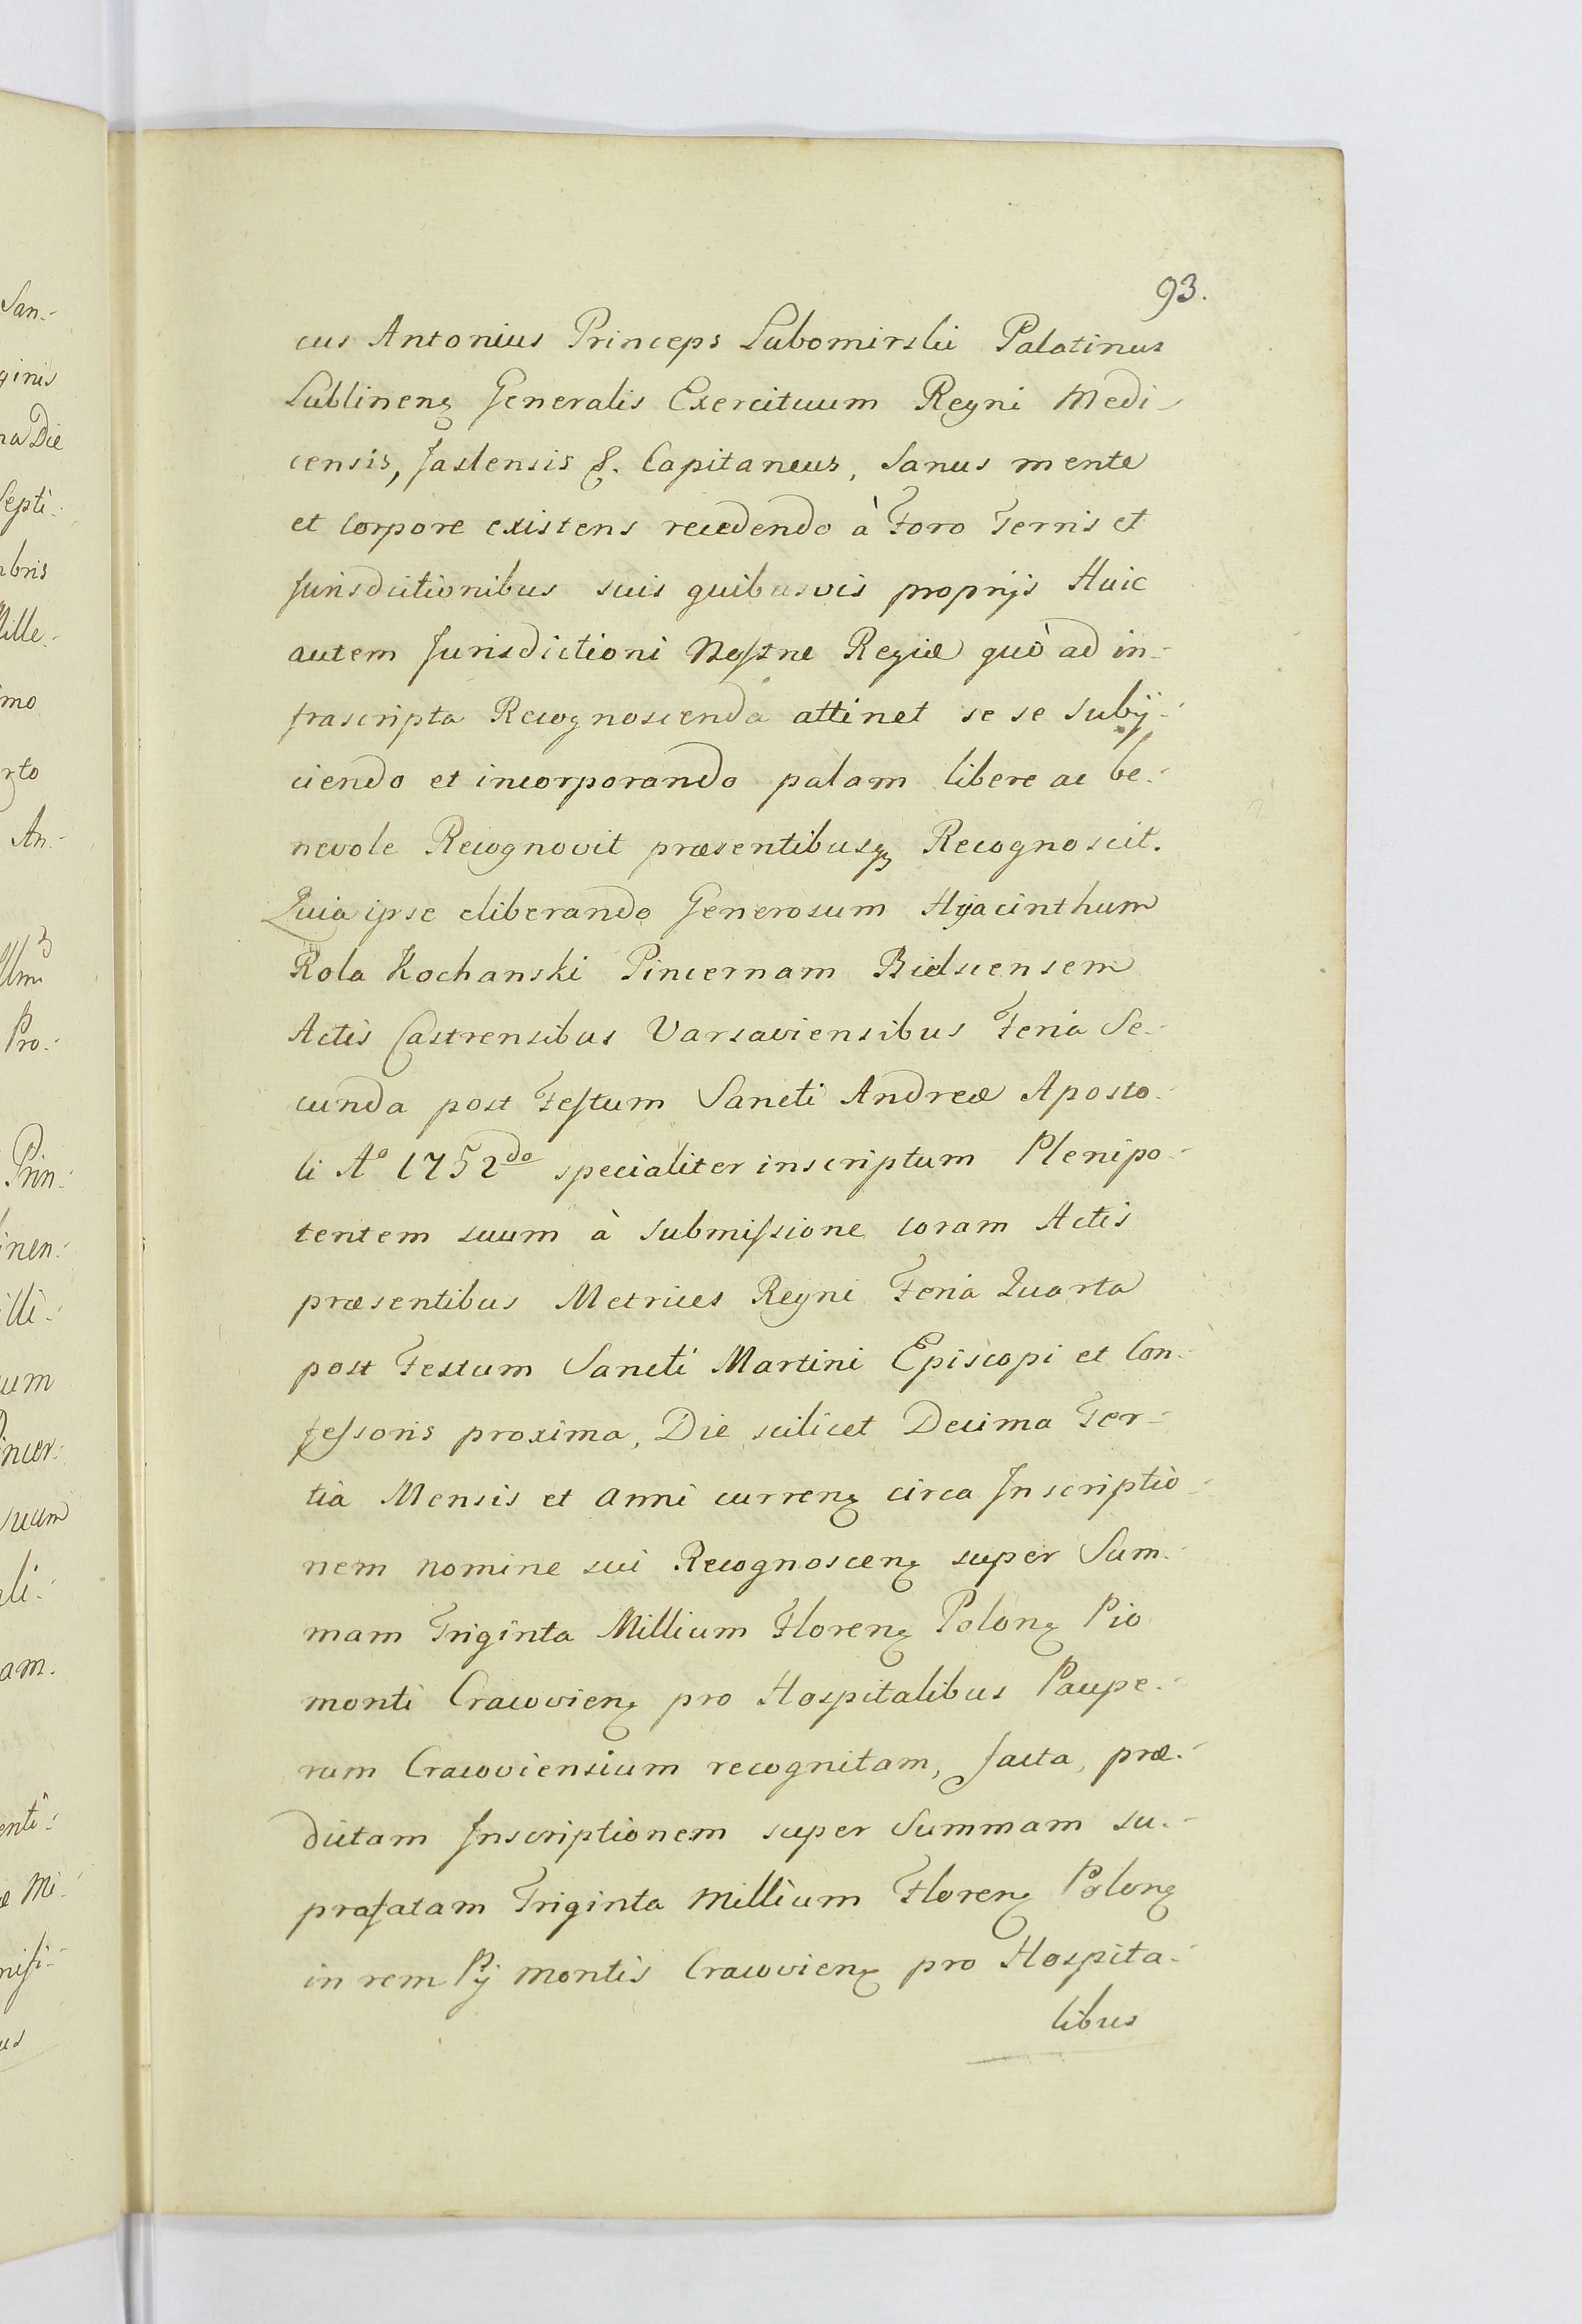 93.
cus Antonius Princeps Lubomirski Palatinus
Lublinenȝ Generalis Exercituum Regni Medi-
censis, Jaslensis &. Capitaneus, Sanus mente
et corpore existens recedendo à Foro Terris et
Jurisdictionibus suis quibusvis proprijs Huic
autem Jurisdictioni Nostræ Regiæ quò ad in-
frascripta Recognoscenda attinet se se subij-
ciendo et incorporando palam libere ac be-
nevole Recognovit præsentibusqȝ Recognoscit.
Quia ipse eliberando Generosum Hyacinthum
Rola Kochanski Pincernam Bielscensem
Actis Castrensibus Varsaviensibus Feria Se-
cunda post Festum Sancti Andreæ Aposto-
li Aº 1752do specialiter inscriptum Plenipo-
tentem suum à submissione coram Actis
præsentibus Metrices Regni Feria Quarta
post Festum Sancti Martini Episcopi et Con-
fessoris proxima, Die scilicet Decima Ter-
tia Mensis et Anni currenȝ circa Inscriptio-
nem nomine sui Recognoscenȝ super Sum-
mam Triginta Millium Florenȝ Polonȝ Pio
monti Cracovienȝ pro Hospitalibus Paupe-
rum Cracoviensium recognitam, facta, præ-
dictam Inscriptionem super Summam su-
prafatam Triginta Millium Florenȝ Polonȝ
in rem Pij montis Cracovienȝ pro Hospita-
libus